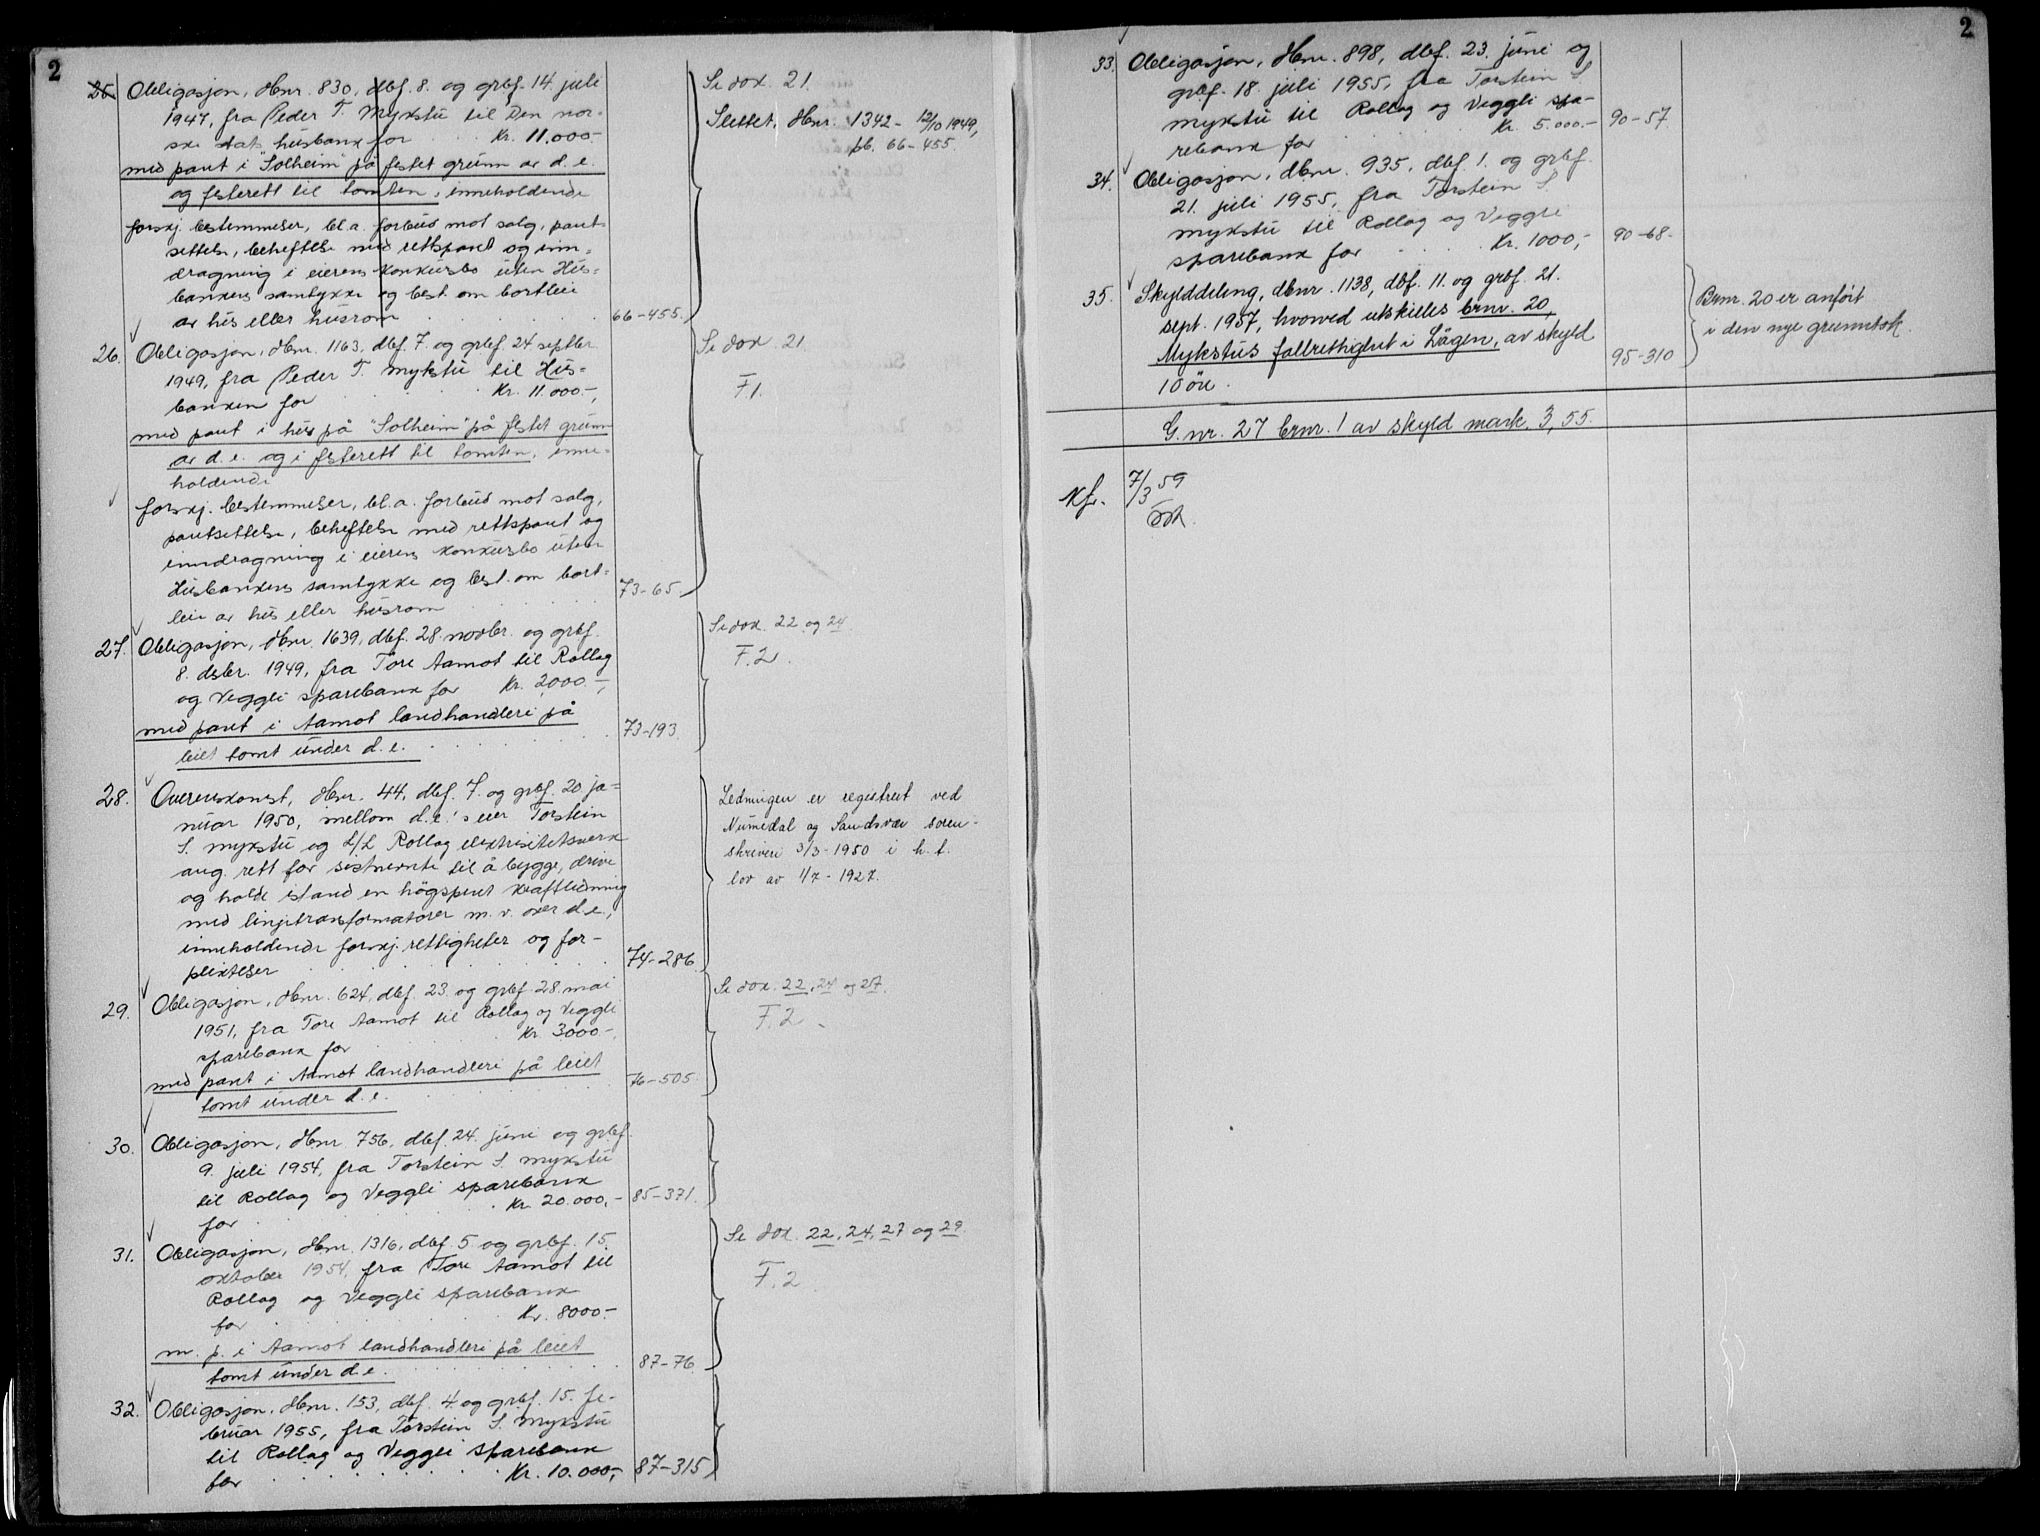 2
25. Obligasjon, dbnr. 830, dbf. 8. og grbf. 14. juli
1947, fra Peder T. Mykstu til Den nor-
ske stats husbank for Kr. 11.000.-
med pant i "Solheim" på festet grunn av d.e.
og festerett til tomten, inneholdende
forskj. bestemmelser, bl.a. forbud mot salg, pant-
settelse, beheftelse med rettspant og inn-
dragning i eierens konkursbo uten Hus-
bankens samtykke og best. om bortleie
av hus eller husrom
66-455.
Se dok. 21.
Slettet, dbnr. 1342 - 12/10 1949,
pb. 66-455.
26. Obligasjon, dbnr. 1163, dbf. 7. og grbf. 24. septbr.
1949, fra Peder T. Mykstu til Hus-
banken for Kr. 11.000.-,
med pant i hus på "Solheim" på festet grunn
av d.e. og i festerett til tomten, inne-
holdende
forskj. bestemmelser, bl.a. forbud mot salg,
pantsettelse, beheftelse med rettspant og
inndragning i eierens konkursbo uten
Husbankens samtykke og best. om bort-
leie av hus eller husrom
73-65.
Se dok. 21.
F1.
27. Obligasjon, dbnr. 1639, dbf. 28. novbr. og grbf.
8. dsbr. 1949, fra Tore Aamot til Rollag
og Veggli sparebank for Kr. 2000.-,
med pant i Aamot landhandleri på
leiet tomt under d.e.
73-193.
Se dok. 22 og 24
F.2.
28. Overenskomst, dbnr. 44, dbf. 7. og grbf. 20. ja-
nuar 1950, mellom d.e.'s eier Torstein
S. Mykstu og L/L Rollag elektrisitetsverk
ang. rett for sistnevnte til å bygge, drive
og holde istand en högspent kraftledning
med linjetransformatorer m.v. over d.e.,
inneholdende forskj. rettigheter og for-
pliktelser
74-286.
Ledningen er registrert ved
Numedal og Sandsvær soren-
skriveri 3/3-1950 i h.t.
lov av 1/7-1927.
29. Obligasjon, dbnr. 624, dbf. 23. og grbf. 28. mai
1951, fra Tore Aamot til Rollag og Veggli
sparebank for Kr. 3000.-,
med pant i Aamot landhandleri på leiet
tomt under d.e.
76-505.
Se dok. 22, 24 og 27.
F.2.
30. Obligasjon, dbnr. 756, dbf. 24. juni og grbf.
9. juli 1954, fra Torstein S. Mykstu
til Rollag og Veggli sparebank
for Kr. 20.000,-
85-371.
31. Obligasjon, dbnr. 1316, dbf. 5. og grbf. 15.
oktober 1954, fra Tore Aamot til
Rollag og Veggli sparebank
for Kr. 8000.-
m. p. i Aamot landhandleri på leiet
tomt under d.e.
87-76.
Se dok. 22, 24, 27 og 29.
F.2
32. Obligasjon, dbnr. 153, dbf. 4. og grbf. 15. fe-
bruar 1955, fra Torstein S. Mykstu
til Rollag og Veggli sparebank
for Kr. 10.000,-
87-315
2
33. Obligasjon, dbnr. 898, dbf. 23. juni og
grbf. 18. juli 1955, fra Torstein S.
Mykstu til Rollag og Veggli spa-
rebank for Kr. 5.000.-
90-57.
34. Obligasjon, dbnr. 935, dbf. 1. og grbf.
21. juli 1955, fra Torstein S.
Mykstu til Rollag og Veggli
sparebank for Kr. 1000,-
90-68.
35. Skylddeling, dbnr. 1138, dbf. 11. og grbf. 21.
sept. 1957, hvorved utskilles brnr. 20,
Mykstus fallrettighet i Lågen, av skyld
10 öre.
95-310
Brnr. 20 er anført
i den nye grunnbok.
G.nr. 27 brnr. 1 av skyld mark 3,55.
Kfr. 7/3 59